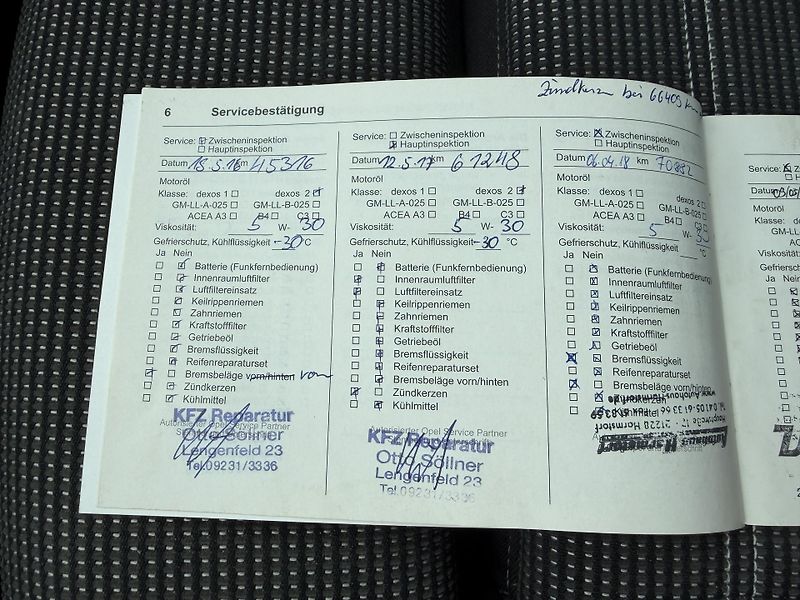 Zündkerzen bei 66409 km
6 Servicebestätigung
Service: ☒ Zwischeninspektion
☐ Hauptinspektion
Datum 18.5.16 km 45316
Motoröl
Klasse: dexos 1 ☐ dexos 2 ☒
GM-LL-A-025 ☐ GM-LL-B-025 ☐
ACEA A3 ☐ B4 ☐ C3 ☐
Viskosität: 5 W- 30
Gefrierschutz, Kühlflüssigkeit -30 °C
Ja Nein
☐ ☒ Batterie (Funkfernbedienung)
☐ ☒ Innenraumluftfilter
☐ ☒ Luftfiltereinsatz
☐ ☒ Keilrippenriemen
☐ ☒ Zahnriemen
☐ ☒ Kraftstofffilter
☐ ☒ Getriebeöl
☐ ☒ Bremsflüssigkeit
☐ ☒ Reifenreparaturset
☒ ☐ Bremsbeläge vorn/hinten vorn
☐ ☒ Zündkerzen
☐ ☒ Kühlmittel
Autorisierter Opel Service Partner
KFZ Reparatur
Otto Söllner
Lengenfeld 23
Tel.09231/3336
Service: ☐ Zwischeninspektion
☒ Hauptinspektion
Datum 12.5.17 km 61248
Motoröl
Klasse: dexos 1 ☐ dexos 2 ☒
GM-LL-A-025 ☐ GM-LL-B-025 ☐
ACEA A3 ☐ B4 ☐ C3 ☐
Viskosität: 5 W- 30
Gefrierschutz, Kühlflüssigkeit -30 °C
Ja Nein
☐ ☒ Batterie (Funkfernbedienung)
☒ ☐ Innenraumluftfilter
☒ ☐ Luftfiltereinsatz
☐ ☒ Keilrippenriemen
☐ ☒ Zahnriemen
☐ ☒ Kraftstofffilter
☐ ☒ Getriebeöl
☐ ☒ Bremsflüssigkeit
☐ ☒ Reifenreparaturset
☐ ☒ Bremsbeläge vorn/hinten
☒ ☐ Zündkerzen
☐ ☒ Kühlmittel
Autorisierter Opel Service Partner
KFZ Reparatur
Otto Söllner
Lengenfeld 23
Tel.09231/3336
Service: ☒ Zwischeninspektion
☐ Hauptinspektion
Datum 06.04.18 km 70882
Motoröl
Klasse: dexos 1 ☐ dexos 2
GM-LL-A-025 ☐ GM-LL-B-025 ☐
ACEA A3 ☐ B4 ☐ C3 ☐
Viskosität: 5 W- 30
Gefrierschutz, Kühlflüssigkeit °C
Ja Nein
☐ ☒ Batterie (Funkfernbedienung)
☐ ☒ Innenraumluftfilter
☐ ☒ Luftfiltereinsatz
☐ ☒ Keilrippenriemen
☐ ☒ Zahnriemen
☐ ☒ Kraftstofffilter
☐ ☒ Getriebeöl
☒ ☐ Bremsflüssigkeit
☐ ☒ Reifenreparaturset
☒ ☐ Bremsbeläge vorn/hinten
Zündkerzen
Kühlmittel
Autohaus
21228 Harmstorf
Service:
Datum
Motoröl
Klasse:
GM-LL
ACE
Viskosität:
Gefrierschutz
Ja Nein